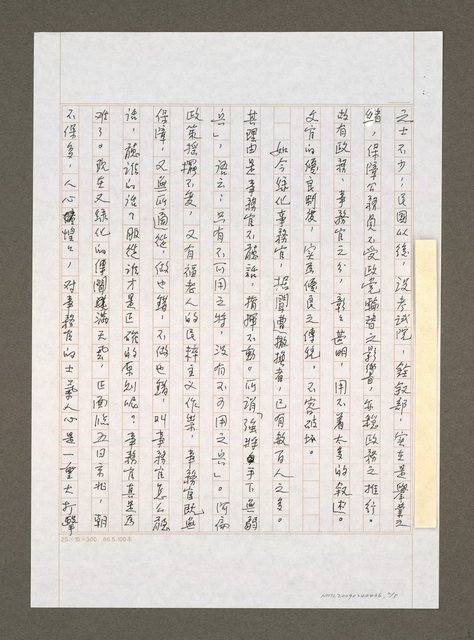 之士不少；民國以後，設考試院，銓敘部，實在是學業之
緒，保障公務員不受政黨輪替之影響，安穩政務之推行。
故有政務、事務官之分，彰彰甚明，用不著太多的敘述。
文官的優良制度，實為優良之傳統，不容破坏。
如今綠化事務官，據聞遭撤換者，已有數百人之多。
其理由是事務官不聽話，指揮不動。所謂「強將手下無弱
兵」，語云：「只有不可用之將，沒有不可用之兵」。何偏
政策搖擺不定，又有強老人的民粹主义作祟，事務官既無
保障，又無所適從，做也錯，不做也錯，叫事務官怎么聽
話，聽誰的話？服從誰才是正確的原則呢？事務官真是為
难了。既在又綠化的傳聞瀰滿天飛，已面臨五日京兆，朝
不保夕，人心惶惶，對事務官的士氣人心是一重大打擊
25×10=300 86.5.100本
NMTL20090240046, 2/5